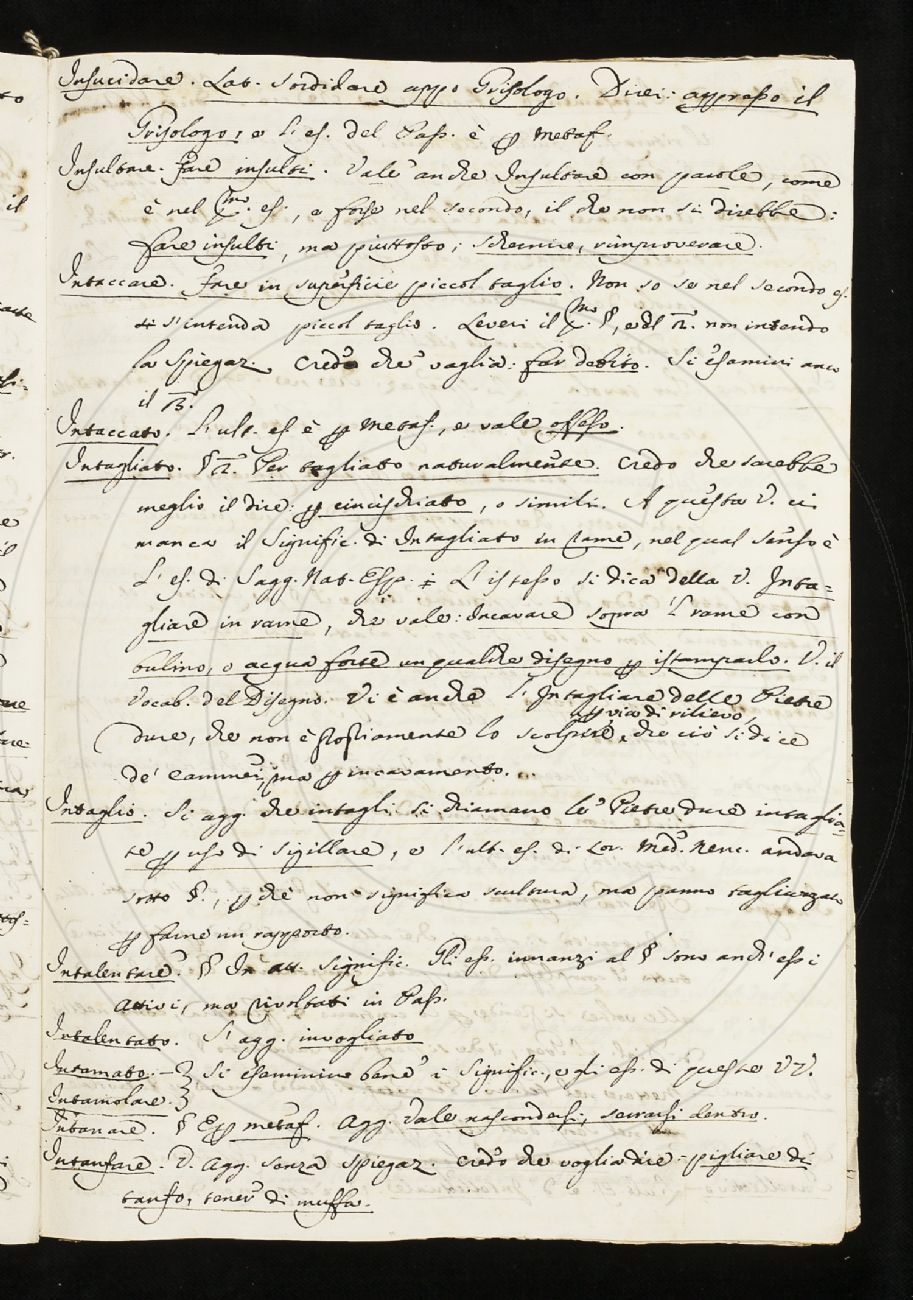 Insucidare. Lat. sordidare appo Grisologo. Direi: appresso il
Grisologo, e l'es. del Pass. è p metaf.
Insultare. fare insulti. Vale anche Insultare con parole, come
è nel pmo. es., e forse nel secondo, il che non si direbbe:
fare insulti, ma piuttosto; schernire, rimproverare.
Intaccare. fare in superficie piccol taglio. Non so se nel secondo es.
s'intenda piccol taglio. Leverei il pmo §, e del R. non intendo
la Spiegaz. Credo che vaglia: far debito. Si esamini anco
il R.
Intaccato. L'ult. es. è p metaf., e vale offeso.
Intagliato. § R. Per tagliato naturalmente. Credo che sarebbe
meglio il dire: p cincischiato, o simili. A questa V. ci
manca il Signific. di Intagliato in rame, nel qual senso è
l'es. di Sagg. Nat. Esp. L'istesso si dica della V. Inta-
gliare in rame, che vale: Incavare sopra l rame con
bulino, o acqua forte un qualche disegno p istamparlo. V. il
Vocab. del Disegno. Vi è anche l'Intagliare delle Pietre
p via di rilievo,
dure, che non è propriamente lo scolpire, che ciò si dice
de' Cammei, ma p incavamento.
Intaglio. Si agg. che intagli si chiamano le Pietre dure intaglia-
te p uso di sigillare, e l'ult. es. di Lor. Med. Nenc. andava
sotto §., p chè non significa scultura, ma panno tagliuzzato
p farne un rapporto.
Intalentare. § In att. signific. Gli es. innanzi al § sono anch'essi
attivi, ma rivoltati in Pass.
Intalentato. S'agg. invogliato
Intamato. Si esaminino bene i Signific., e gli es. di queste VV.
Intamolare.
Intanare. § E p metaf. agg. Vale nascondersi, serrarsi dentro.
Intanfare. V. Agg. senza spiegaz. Credo che voglia dire pigliare di
tanfo, tener di muffa.